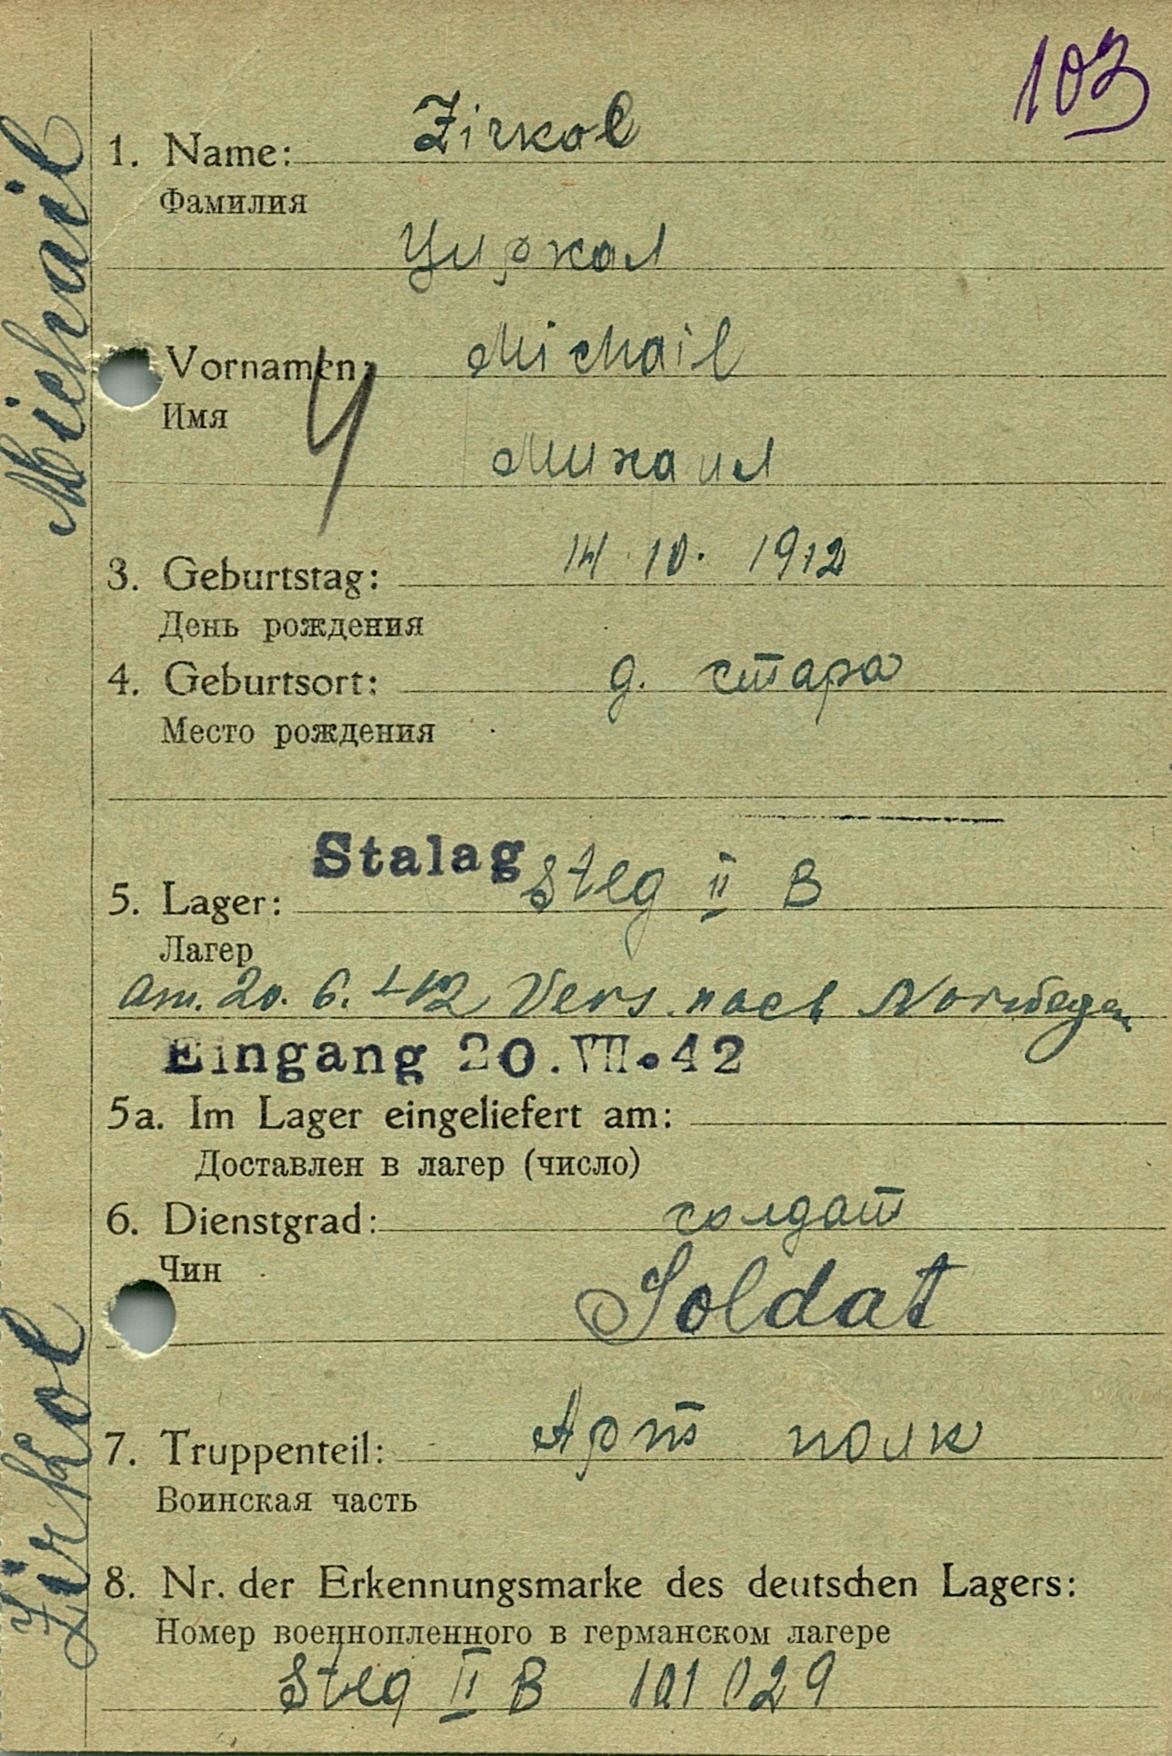 103
1. Name: Zirkol
Фамилия
Циркол
Vornamen: Michail
Имя
Михаил
3. Geburtstag: 14 10. 1912
День рождения
4. Geburtsort: д. стара
Место рождения
Stalag
5. Lager: Stlg II B
Лагер
am. 20. 6. 42 Vers. nach Norwegen
Eingang 20.VII.42
5a. Im Lager eingeliefert am:
Доставлен в лагер (число)
6. Dienstgrad: солдат
Чин
Soldat
7. Truppenteil: Арт полк
Воинская часть
8. Nr. der Erkennungsmarke des deutschen Lagers:
Номер военнопленного в германском лагере
Stlg II B 101029
Zirkol Michail